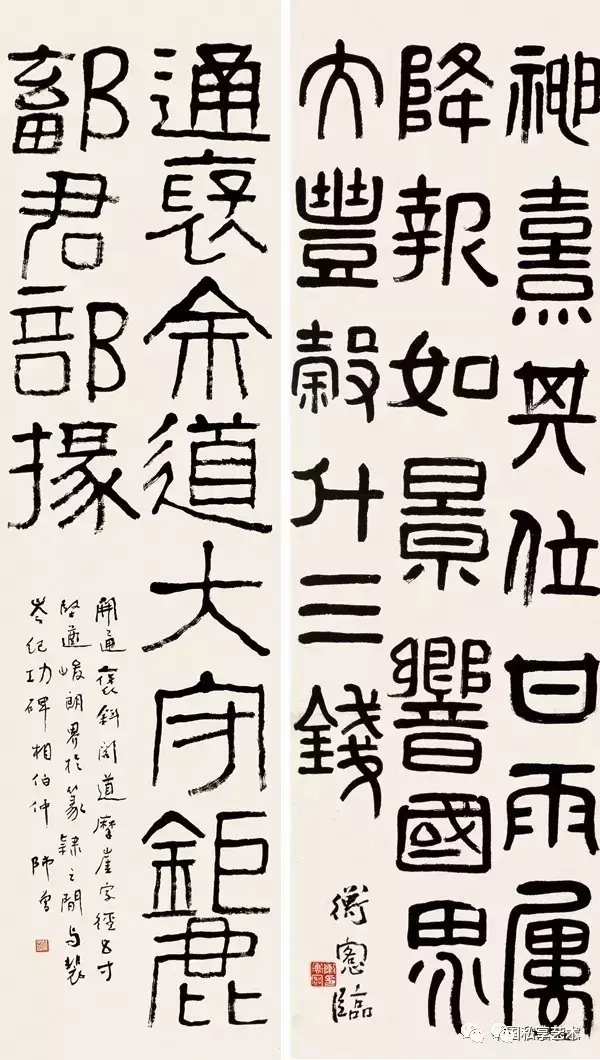 神熹其位甘雨屢
降報如景響國界
大豐穀斗三錢
衡愙臨
通褒余道大守鉅鹿
鄐君部掾
開通褒斜閣道摩崖字徑五寸
堅遒峻朗界於篆隸之間与裴
岑紀功碑相伯仲 師曾
私享艺术